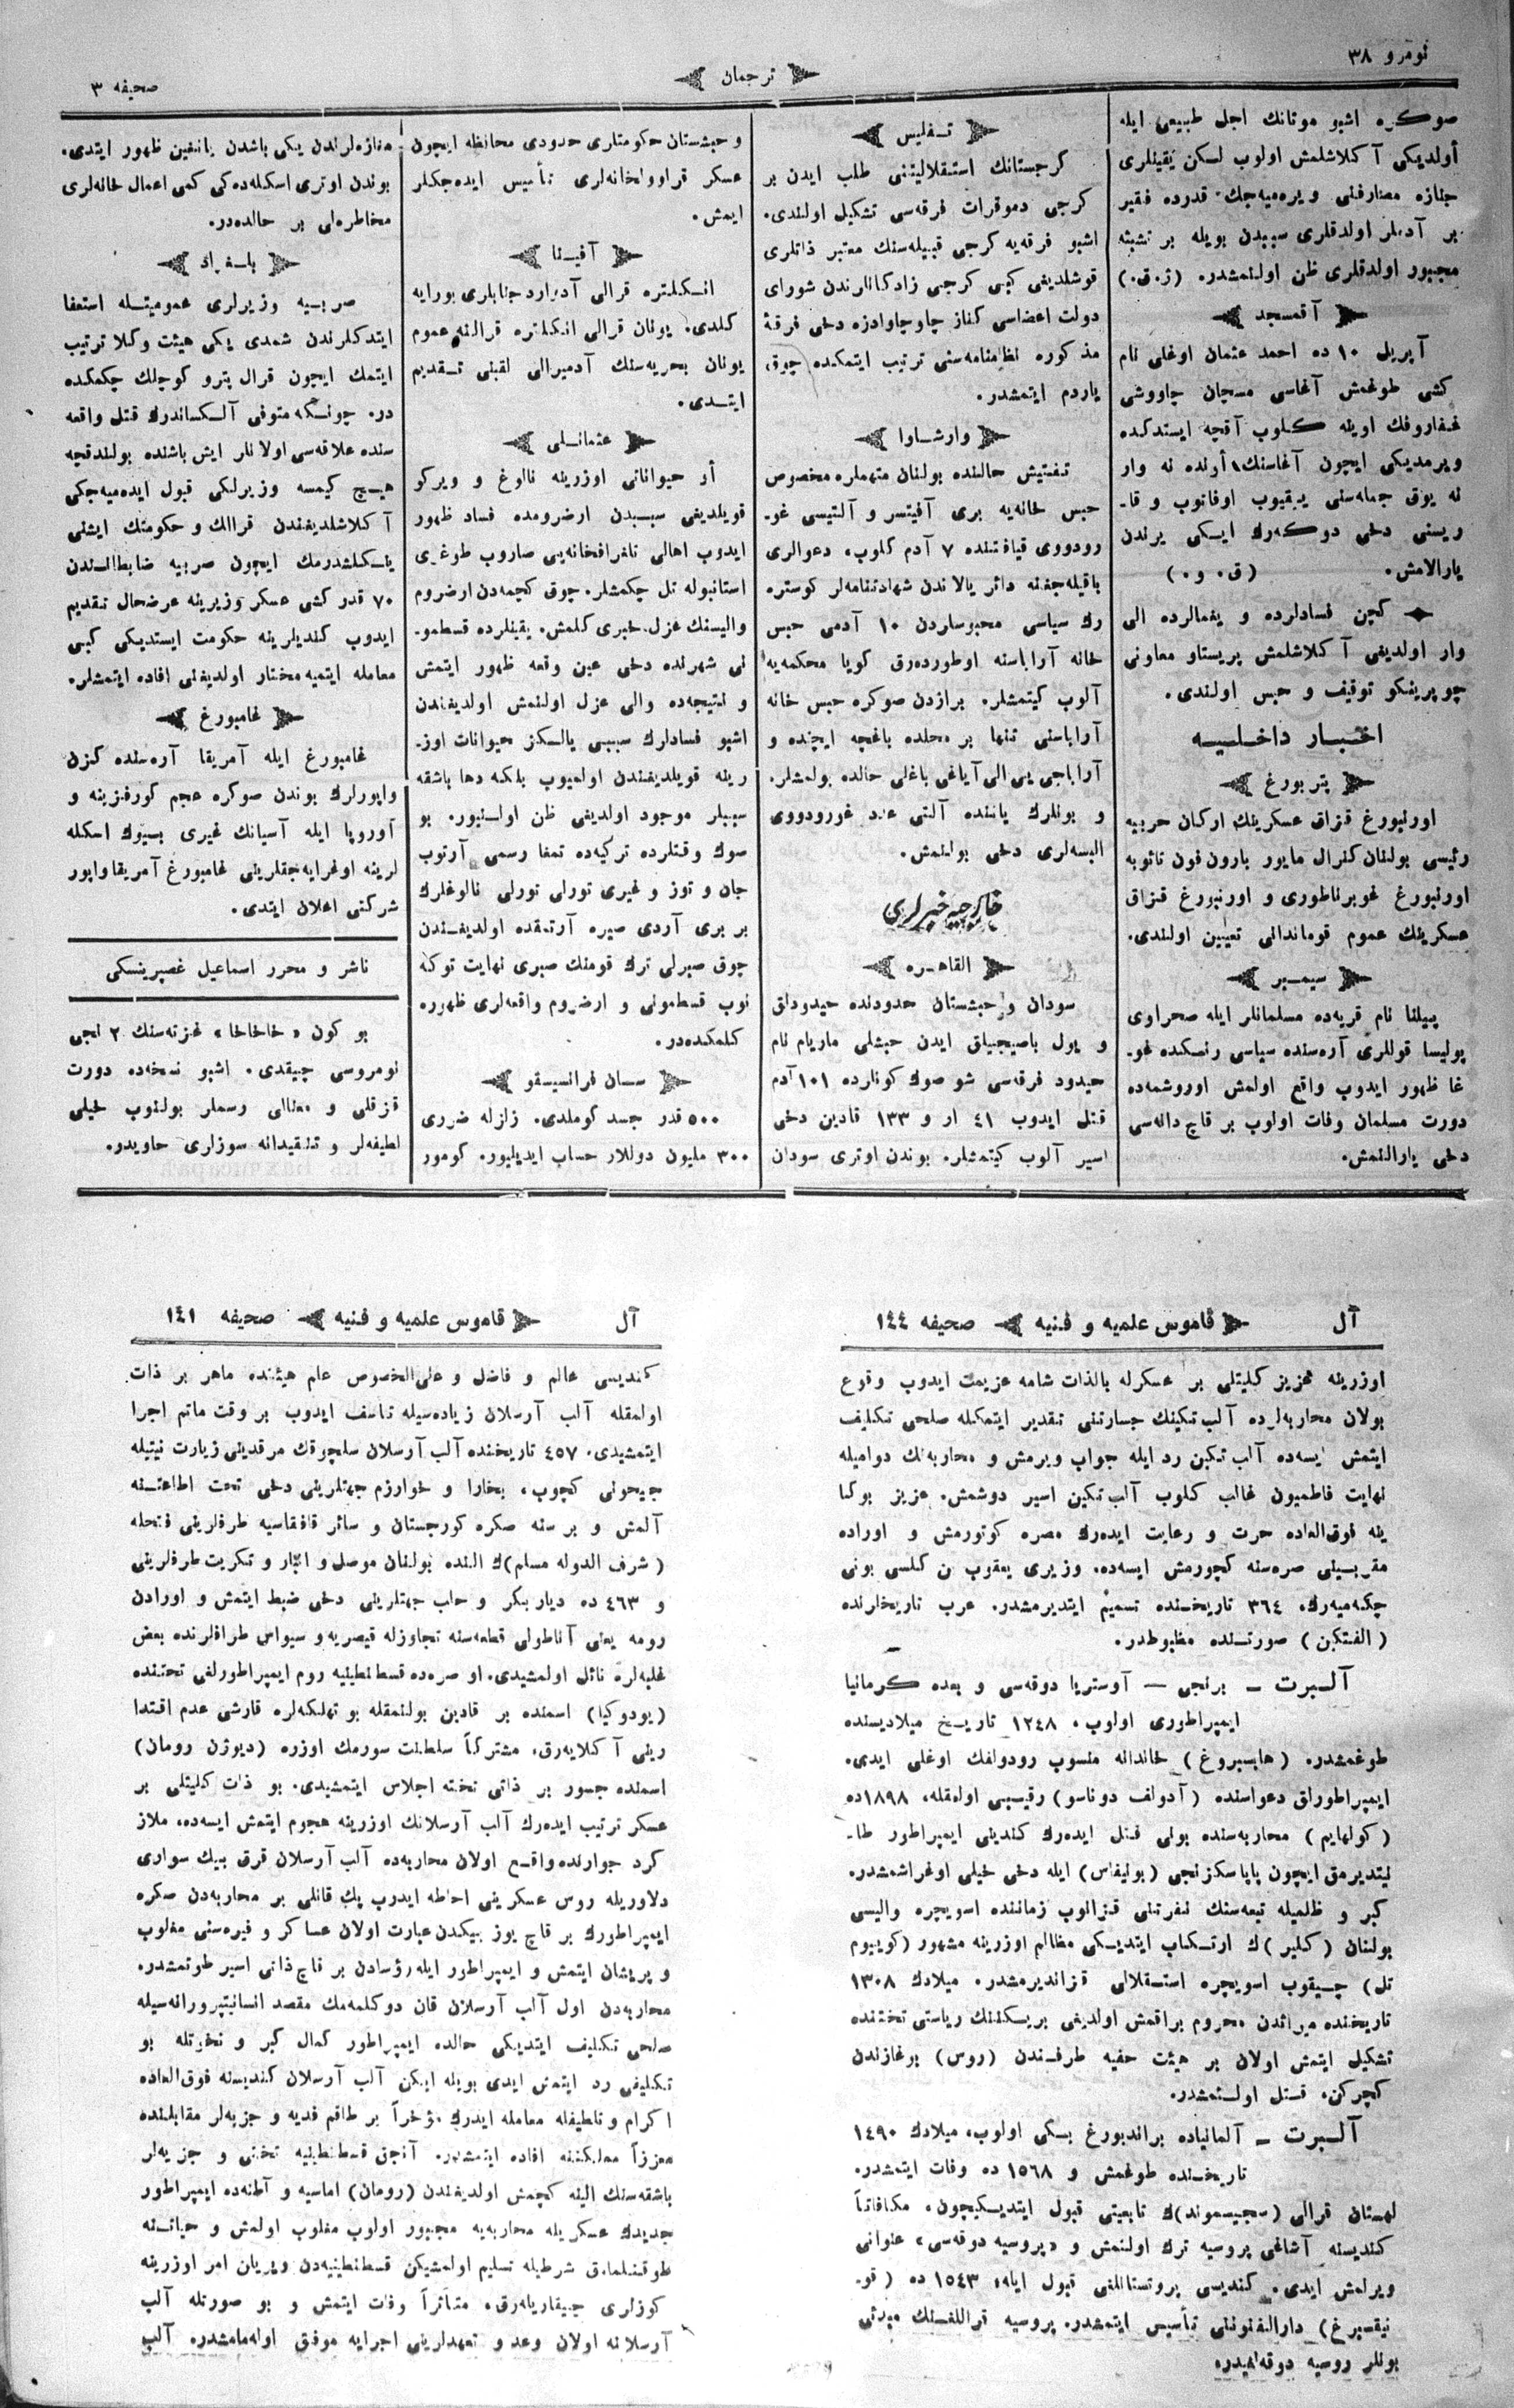 نومرو ٣٨
ترجمان
صحيفه ٣
صوكره اشبو موتانك اجل طبيعى ايله
أولديكى آكلاشلمش اولوب لسكن يقينلرى
جنازه مصارفنى ويره‌ميه‌جك قدرده فقير
بر آدملر اولدقلرى سببدن بويله بر تشبثه
مجبور اولدقلرى ظن اولنمشدره (ژ.ق.)
آقمسجد
آپريل ١٠ ده احمد عثمان اوغلى نام
كشى طوغمش آغاسى مسجان چاووشى
غفاروفك اوينه كلوب آقچه ايستدكده
ويرمديكى ايچون آغاسنك أونده نه وار
نه يوق جمله‌سنى ييقيوب اوفاتوب و قا-
ريسنى دخى دوكه‌رك ايكى يرندن
يارالامش. (ق. و.)
كچن فسادلرده و يغمالرده الى
وار اولديغى آكلاشلمش پريستاو معاونى
چوپرينكو توقيف و حبس اولندى.
اخبار داخليه
پتربورغ
اورنبورغ قزاق عسكرينك اركان حربيه
رئيسى بولنان كنرال مايور بارون فون تائوبه
اورنبورغ غوبرناطورى و اورنبورغ قزاق
عسكرينك عموم قومندانى تعيين اولندى.
سيمبر
پيلنا نام قريه‌ده مسلمانلر ايله صحراوى
پوليسا قوللرى آره‌سنده سياسى رنكده غو-
غا ظهور ايدوب واقع اولمش اوروشمه‌ده
دورت مسلمان وفات اولوب بر قاچ دانه‌سى
دخى يارالنمش.
تفليس
كرجستانك استقلاليتنى طلب ايدن بر
كرجى دموقرات فرقه‌سى تشكيل اولندى.
اشبو فرقه‌يه كرجى قبيله‌سنك معتبر ذاتلرى
قوشلديغى كبى كرجى زادكانلرندن شوراى
دولت اعضاسى كناز چاوچاوادزه دخى فرقهٔ
مذكوره نظامنامه‌سنى ترتيب ايتمكده چوق
ياردم ايتمشدر.
وارشاوا
تفتيش حالنده بولنان متهملره مخصوص
حبس خانه‌يه برى آفيتسر و آلتيسى غو-
رودووى قيافتنده ٧ آدم كلوب، دعوالرى
باقيله‌جغنه دائر يالاندن شهادتنامه‌لر كوستره
رك سياسى محبوساردن ١٠ آدمى حبس
خانه آراباسنه اوطورده‌رق كويا محكمه‌يه
آلوب كيتمشلر. برازدن صوكره حبس خانه
آراباسنى تنها بر محلده باغچه ايچنده و
آراباجى يى الى آياغى باغلى حالده بولمشلر.
و بونلرك ياننده آلتى عدد غورودووى
البسه‌لرى دخى بولنمش.
خارجيه خبرلرى
القاهره
سودان و حبشستان حدودنده حيدودلق
و يول باصيجيلق ايدن حبشلى ماريام نام
حيدود فرقه‌سى شو صوك كونارده ١٠١ آدم
قتل ايدوب ٤١ ار و ١٣٣ قادين دخى
اسير آلوب كيتمشلر. بوندن اوترى سودان
و حبشستان حكومتلرى حدودى محافظه ايچون
عسكر قراوولخانه‌لرى تأسيس ايده‌جكلر
ايمش.
آفينا
انكلتره قرالى آدوارد جنابلرى بورايه
كلدى. يونان قرالى انكلتره قرالنه عموم
يونان بحريه‌سنك آدميرالى لقبنى تقديم
ايتدى.
عثمانلى
أو حيواناتى اوزرينه نالوغ و ويركو
قويلديغى سببدن ارضرومده فساد ظهور
ايدوب اهالى تلغرافخانه‌يى صاروب طوغرى
استانبوله تل چكمشلر. چوق كچمه‌دن ارضروم
واليسنك عزل خبرى كلمش. يقينلرده قسطمو-
نى شهرنده دخى عين وقعه ظهور ايتمش
و نتيجه‌ده والى عزل اولنمش اولديغندن
اشبو فسادلرك سببى يالكز حيوانات اوز-
رينه قويلديغندن اولميوب بلكه دها باشقه
سببلر موجود اولديغى ظن اولنيور. بو
صوك وقتلرده تركيه‌ده تمغا رسمى آرتوب
جان و توز و غيرى تورلى تورلى نالوغلرك
بر برى آردى صيره آرتمقده اولديغندن
چوق صبرلى ترك قومنك صبرى نهايت توكه
نوب قسطمونى و ارضروم واقعه‌لرى ظهوره
كلمكده‌در.
سان فرانسيسقو
٥٠٠ قدر جسد كوملدى. زلزله ضررى
٣٠٠ مليون دوللار حساب ايديليور. كومور
مغازه‌لرندن يكى باشدن يانغين ظهور ايتدى.
بوندن اوترى اسكله‌ده‌كى كمى اعمال خانه‌لرى
مخاطره‌لى بر حالده‌در.
بلغراد
صربيه وزيرلرى عموميتله استعفا
ايتدكلرندن شمدى يكى هيئت وكلا ترتيب
ايتمك ايچون قرال پترو كوچلك چكمكده
در. چونكه متوفى آلكساندرك قتل واقعه
سنده علاقه‌سى اولانلر ايش باشنده بولندقچه
هيچ كيمسه وزيرلكى قبول ايده‌ميه‌جكى
آكلاشلديغندن قراللك و حكومتك ايشنى
يكلشدرمك ايچون صربيه ضابطانندن
٧٠ قدر كشى عسكر وزيرينه عرضحال تقديم
ايدوب كنديلرينه حكومت ايستديكى كبى
معامله ايتميه مختار اولديغنى افاده ايتمشلره
غامبورغ
غامبورغ ايله آمريقا آره‌سنده كزن
واپورلرك بوندن صوكره عجم كورفزينه و
اوروپا ايله آسيانك غيرى بيوك اسكله
لرينه اوغرايه‌جقلرينى غامبورغ آمريقا واپور
شركتى اعلان ايتدى.
ناشر و محرر اسماعيل غصپرينسكى
بو كون «خاخاخا» غزته‌سنك ٢ نجى
نومروسى چيقدى. اشبو نسخه‌ده دورت
قزقلى و معنالى رسملر بولنوب خيلى
لطيفه‌لر و تنقيدانه سوزلرى حاويدو.
آل
قاموس علميه و فنيه
صحيفه ١٤٤
اوزرينه عزيز كليتلى بر عسكرله بالذات شامه عزيمت ايدوب وقوع
بولان محاربه‌لرده آلب تكينك جسارتنى تقدير ايتمكله صلحى تكليف
ايتمش ايسه‌ده آلب تكين رد ايله جواب ويرمش و محاربه‌نك دواميله
نهايت فاطميون غالب كلوب آلب تكين اسير دوشمش. عزيز بوكا
ينه فوق‌العاده حرت و رعايت ايده‌رك مصره كوتورمش و اوراده
مقربينى صره‌سنه كچورمش ايسه‌ده، وزيرى يعقوب بن كلسى بونى
چكه‌ميه‌رك، ٣٦٤ تاريخنده تسميم ايتديرمشدر. عرب تاريخلرنده
(الفتكين) صورتنده مظبوطدر.
آلبرت – برنجى — آوستريا دوقه‌سى و بعده كرمانيا
ايمپراطورى اولوب، ١٢٤٨ تاريخ ميلاديسنده
طوغمشدر. (هابسبروغ) خاندانه منسوب رودولفك اوغلى ايدى.
ايمپراطورلق دعواسنده (آدولف دوناسو) رقيبى اولمقله، ١٨٩٨ده
(كولهايم) محاربه‌سنده بونى قتل ايده‌رك كندينى ايمپراطور طا-
نيتديرمق ايچون پاپا سكزنجى (بونيفاس) ايله دخى خيلى اوغراشمشدر.
كبر و ظلميله تبعه‌سنك نفرتنى قزانوب زماننده اسويچره واليسى
بولنان (كسلير)ك ارتكاب ايتديكى مظالم اوزرينه مشهور (كوييوم
تل) چيقوب اسويچره استقلالى قزانديرمشدر. ميلادك ١٣٠٨
تاريخنده ميراثدن محروم براقمش اولديغى بريكننك رياستى تحتنده
تشكيل ايتمش اولان بر هيئت خفيه طرفندن (روس) بوغازندن
كچركن، قتل اولنمشدر.
آلبرت – آلمانياده براندبورغ بكى اولوب، ميلادك ١٤٩٠
تاريخنده طوغمش و ١٥٦٨ ده وفات ايتمشدر.
لهستان قرالى (سجيسموند)ك تابعيتى قبول ايتديكيچون، مكافاتاً
كنديسنه آشاغى پروسيه ترك اولنمش و «پروسيه دوقه‌سى» عنوانى
ويرلمش ايدى. كنديسى پروتستانلغى قبول ايله، ١٥٤٣ ده (قو-
نيقسبرغ) دارالفنوننى تأسيس ايتمشدر. پروسيه قراللغنك مبدئى
بونلر روسيه دوقه‌لغيدره
آل
قاموس علميه و فنيه
صحيفه ١٤١
كنديسى عالم و فاضل و على‌الخصوص علم هيئتده ماهر بر ذات
اولمقله آلب آرسلان زياده‌سيله تأسف ايدوب بر وقت ماتم اجرا
ايتمشيدى. ٤٥٧ تاريخنده آلب آرسلان سلجوقك مرقدينى زيارت نيتيله
جيحونى كچوب، بخارا و خوارزم جهتلرينى دخى تحت اطاعتنه
آلمش و بر سنه صكره كورجستان و سائر قافقاسيه طرفلرينى فتحله
(شرف الدوله مسلم)ك النده بولنان موصل و انبار و تكريت طرفلرينى
و ٤٦٣ ده ديار بكر و حلب جهتلرينى دخى ضبط ايتمش و اورادن
رومه يعنى آناطولى قطعه‌سنه تجاوزله قيصريه و سيواس طرفلرنده بعض
غلبه‌لره نائل اولمشيدى. او صره‌ده قسطنطينيه روم ايمپراطورلغى تحتنده
(يودوكيا) اسمنده بر قادين بولنمقله بو تهلكه‌لره قارشى عدم اقتدا
رينى آكلايه‌رق، مشتركاً سلطنت سورمك اوزره (ديوژن رومان)
اسمنده جسور بر ذاتى تخته اجلاس ايتمشيدى. بو ذات كليتلى بر
عسكر ترتيب ايده‌رك آلب آرسلانك اوزرينه هجوم ايتمش ايسه‌ده، ملاز
كرد جوارنده واقع اولان محاربه‌ده آلب آرسلان قرق بيك سوارى
دلاوريله روس عسكرينى احاطه ايدرب پك قانلى بر محاربه‌دن صكره
ايمپراطورك بر قاچ يوز بيكدن عبارت اولان عساكر و غيره‌سنى مغلوب
و پريشان ايتمش و ايمپراطور ايله رؤسادن بر قاچ ذاتى اسير طوتمشدره
محاربه‌دن اول آلب آرسلان قان دوكلمه‌مك مقصد انسانيتپرورانه‌سيله
صلحى تكليف ايتديكى حالده ايمپراطور كمال كبر و نخوتله بو
تكليفى رد ايتمش ايدى بويله ايكن آلب آرسلان كنديسنه فوق‌العاده
اكرام و تلطيفله معامله ايدرك مؤخراً بر طاقم فديه و جزيه‌لر مقابلنده
معززاً مملكتنه افاده ايتمشدر. آنجق قسطنطينيه تختى و جزيه‌لر
باشقه‌سنك الينه كچمش اولديغندن (رومان) اماسيه و آطنه‌ده ايمپراطور
جديدك عسكريله محاربه‌يه مجبور اولوب مغلوب اولمش و حياتنه
طوقنلمامق شرطيله تسليم اولمشيكن قسطنطينيه‌دن ويريلن امر اوزرينه
كوزلرى چيقاريله‌رق، متأثراً وفات ايتمش و بو صورتله آلب
آرسلانه اولان وعد و تعهدلرينى اجرايه موفق اوله‌مامشدره آلب